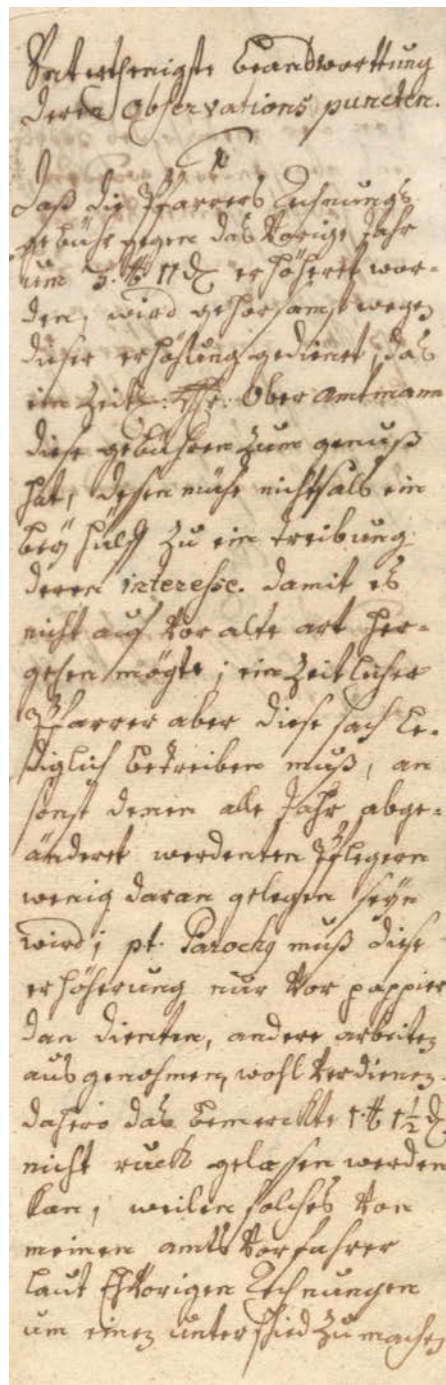 Unterthenigste beandworttung
deren observations puncten.
1
Daß die Pfarrers Rechnungs
gebühr gegen das Vorige Jahr
um 3. ℔ 17 ₰ erhöheret wor-
den, wird gehorsamst wegen
dieser erhöhung gedienet, das
ein Zeitl: Hr: Ober amtmann
diese gebühren zum genuß
hat, dessen mühe nichts als ein
beÿ hülff zu ein treibung
deren interesse. damit es
nicht auf Vor alte art her-
gehen mögte; ein Zeitlicher
Pfarrer aber diese sach le-
diglich betreiben muß, an
sonst denen alle Jahr abge-
änderet werdenten Pflegern
wenig daran gelegen seÿn
wird; pt. Parochq muß diese
erhöherung nur Vor pappier
dan dienten, andere arbeiten
ausgenohmen, wohl Verdienen.
dahero das bemerckte 1 ℔ 1½ ₰
nicht ruckh gelassen werden
kan, weilen solches Von
meinen amts Vorfahrer
laut Vorigen Rechnungen
um einen unterschied zu machen